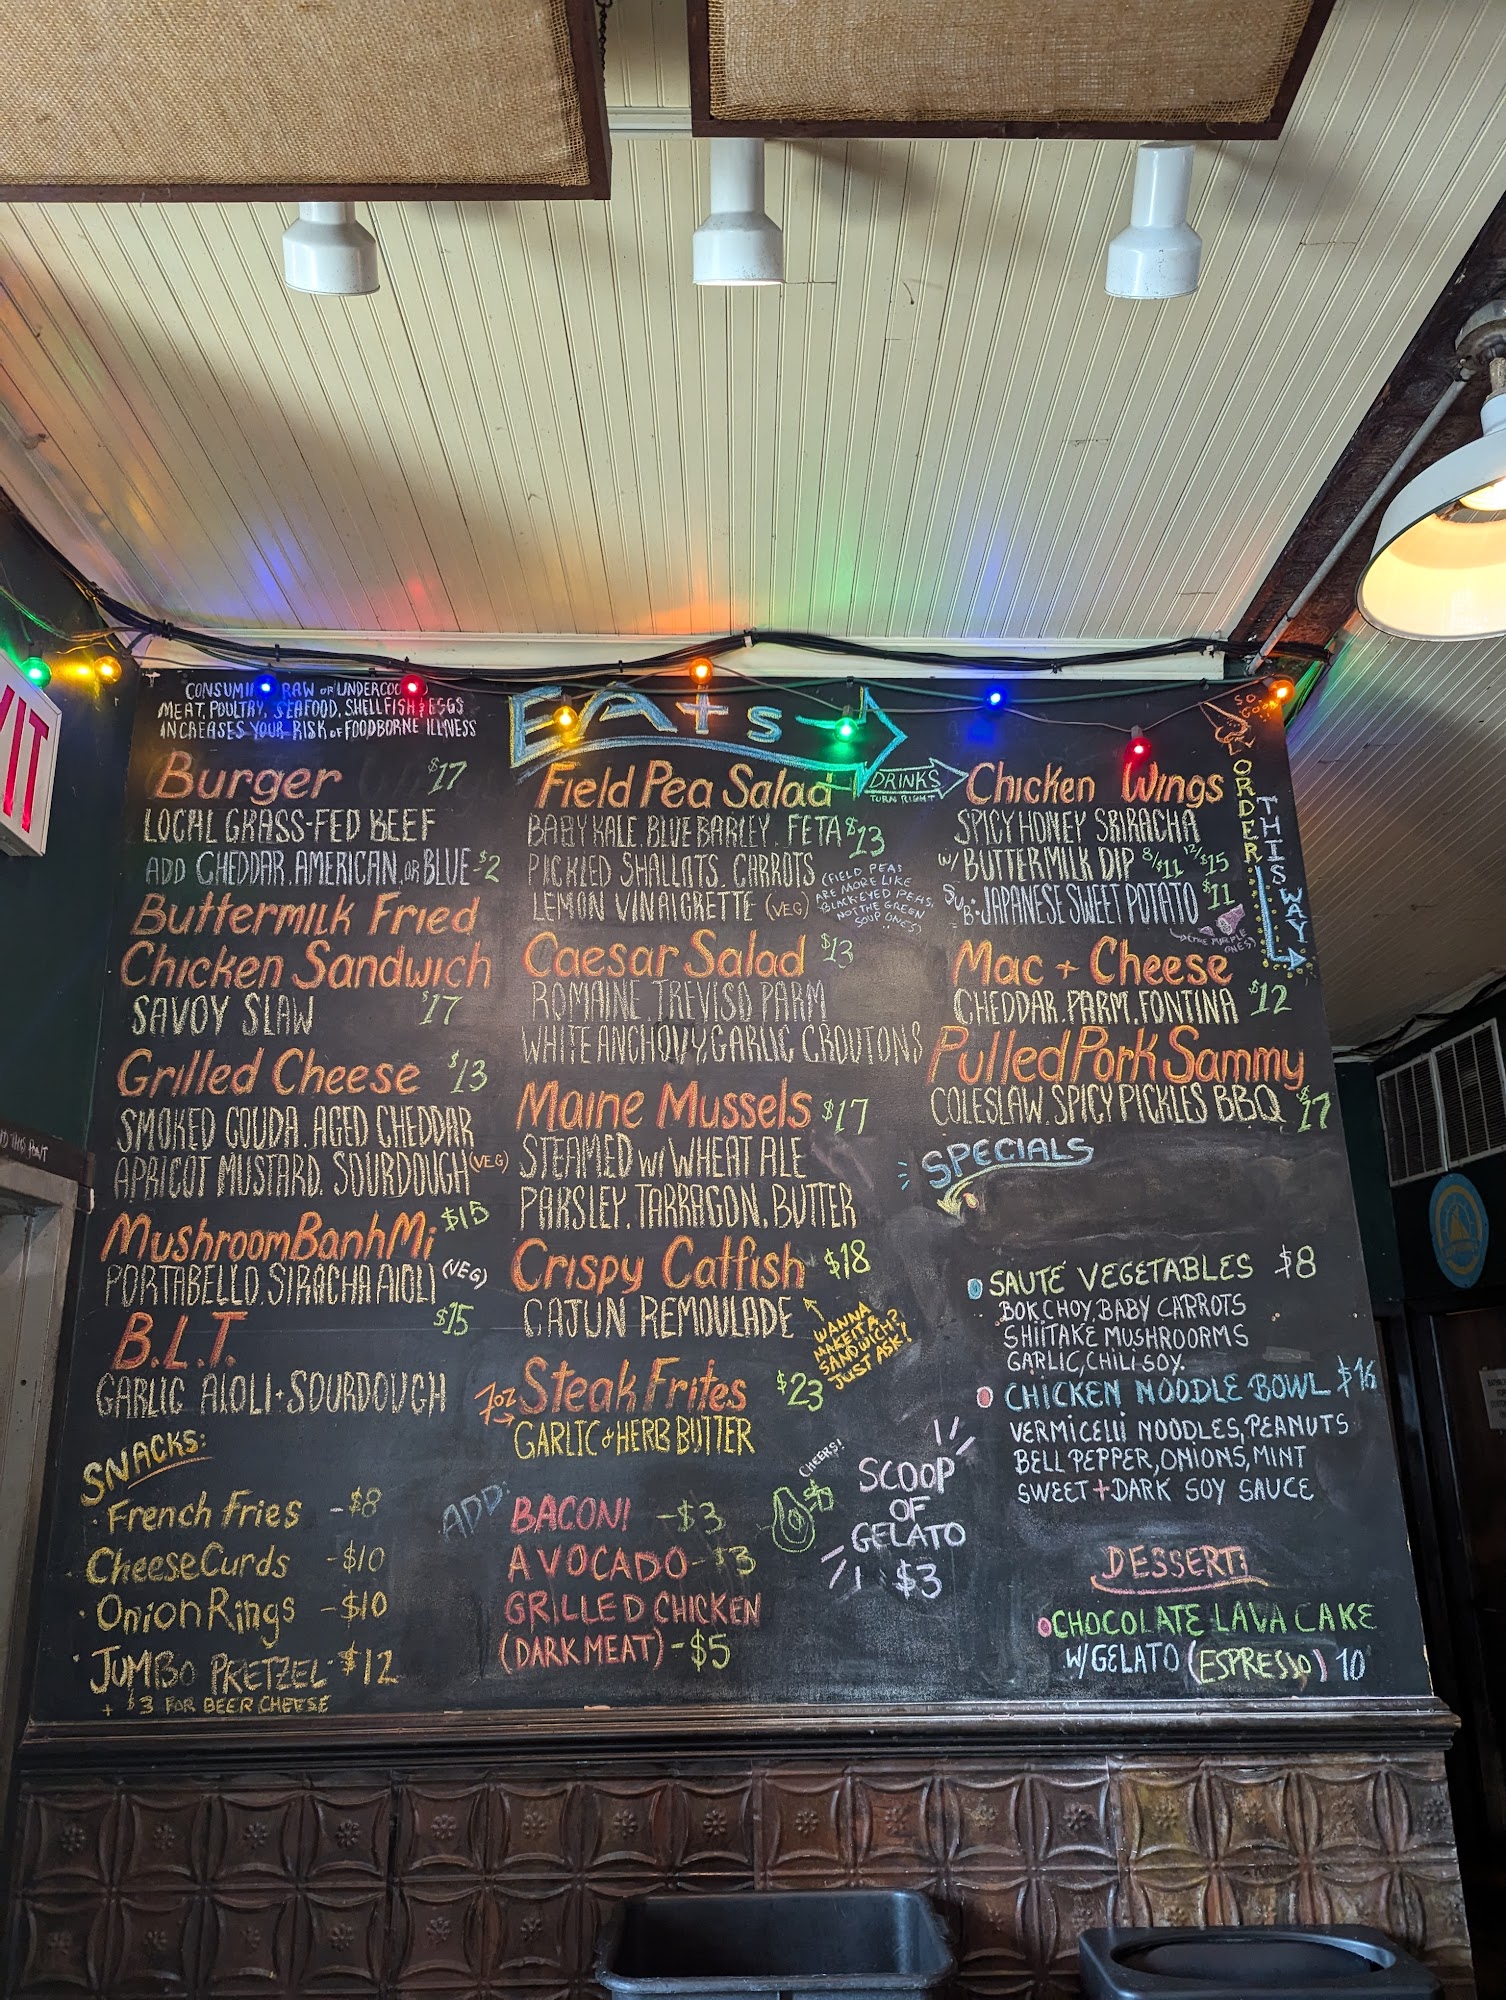 CONSUMING RAW OR UNDERCOOKED
MEAT, POULTRY, SEAFOOD, SHELLFISH & EGGS
INCREASES YOUR RISK OF FOODBORNE ILLNESS
Burger $17
LOCAL GRASS-FED BEEF
ADD CHEDDAR, AMERICAN, OR BLUE -$2
Buttermilk Fried
Chicken Sandwich
SAVOY SLAW $17
Grilled Cheese $13
SMOKED GOUDA, AGED CHEDDAR
APRICOT MUSTARD, SOURDOUGH (VEG)
Mushroom Banh Mi $15
PORTABELLO, SIRACHA AIOLI (VEG)
B.L.T. $15
GARLIC AIOLI + SOURDOUGH
SNACKS:
· French Fries -$8
Cheese Curds -$10
· Onion Rings -$10
· JUMBO PRETZEL - $12
+ $3 FOR BEER CHEESE
EATS
DRINKS
TURN RIGHT
Field Pea Salad
BABY KALE, BLUE BARLEY, FETA $13
PICKLED SHALLOTS, CARROTS
LEMON VINAIGRETTE (VEG)
(FIELD PEAS
ARE MORE LIKE
BLACK-EYED PEAS,
NOT THE GREEN
SOUP ONES)
Caesar Salad $13
ROMAINE, TREVISO, PARM
WHITE ANCHOVY, GARLIC CROUTONS
Maine Mussels $17
STEAMED W/ WHEAT ALE
PARSLEY, TARRAGON, BUTTER
Crispy Catfish $18
CAJUN REMOULADE
WANNA
MAKE IT A
SANDWICH?
JUST ASK!
7oz Steak Frites $23
GARLIC & HERB BUTTER
ADD:
BACON! -$3
AVOCADO -$3
GRILLED CHICKEN
(DARK MEAT) -$5
CHEERS!
SCOOP
OF
GELATO
$3
SO
GOOD
Chicken Wings
SPICY HONEY SRIRACHA
W/ BUTTERMILK DIP 8/$11 12/$15
SUB: JAPANESE SWEET POTATO $11
ORDER
THIS WAY
Mac + Cheese
CHEDDAR, PARM, FONTINA $12
Pulled Pork Sammy
COLESLAW, SPICY PICKLES BBQ $17
SPECIALS
SAUTÉ VEGETABLES $8
BOK CHOY, BABY CARROTS
SHIITAKE MUSHROORMS
GARLIC, CHILI-SOY.
CHICKEN NOODLE BOWL $16
VERMICELLI NOODLES, PEANUTS
BELL PEPPER, ONIONS, MINT
SWEET + DARK SOY SAUCE
DESSERT:
CHOCOLATE LAVA CAKE
W/ GELATO (ESPRESSO) 10